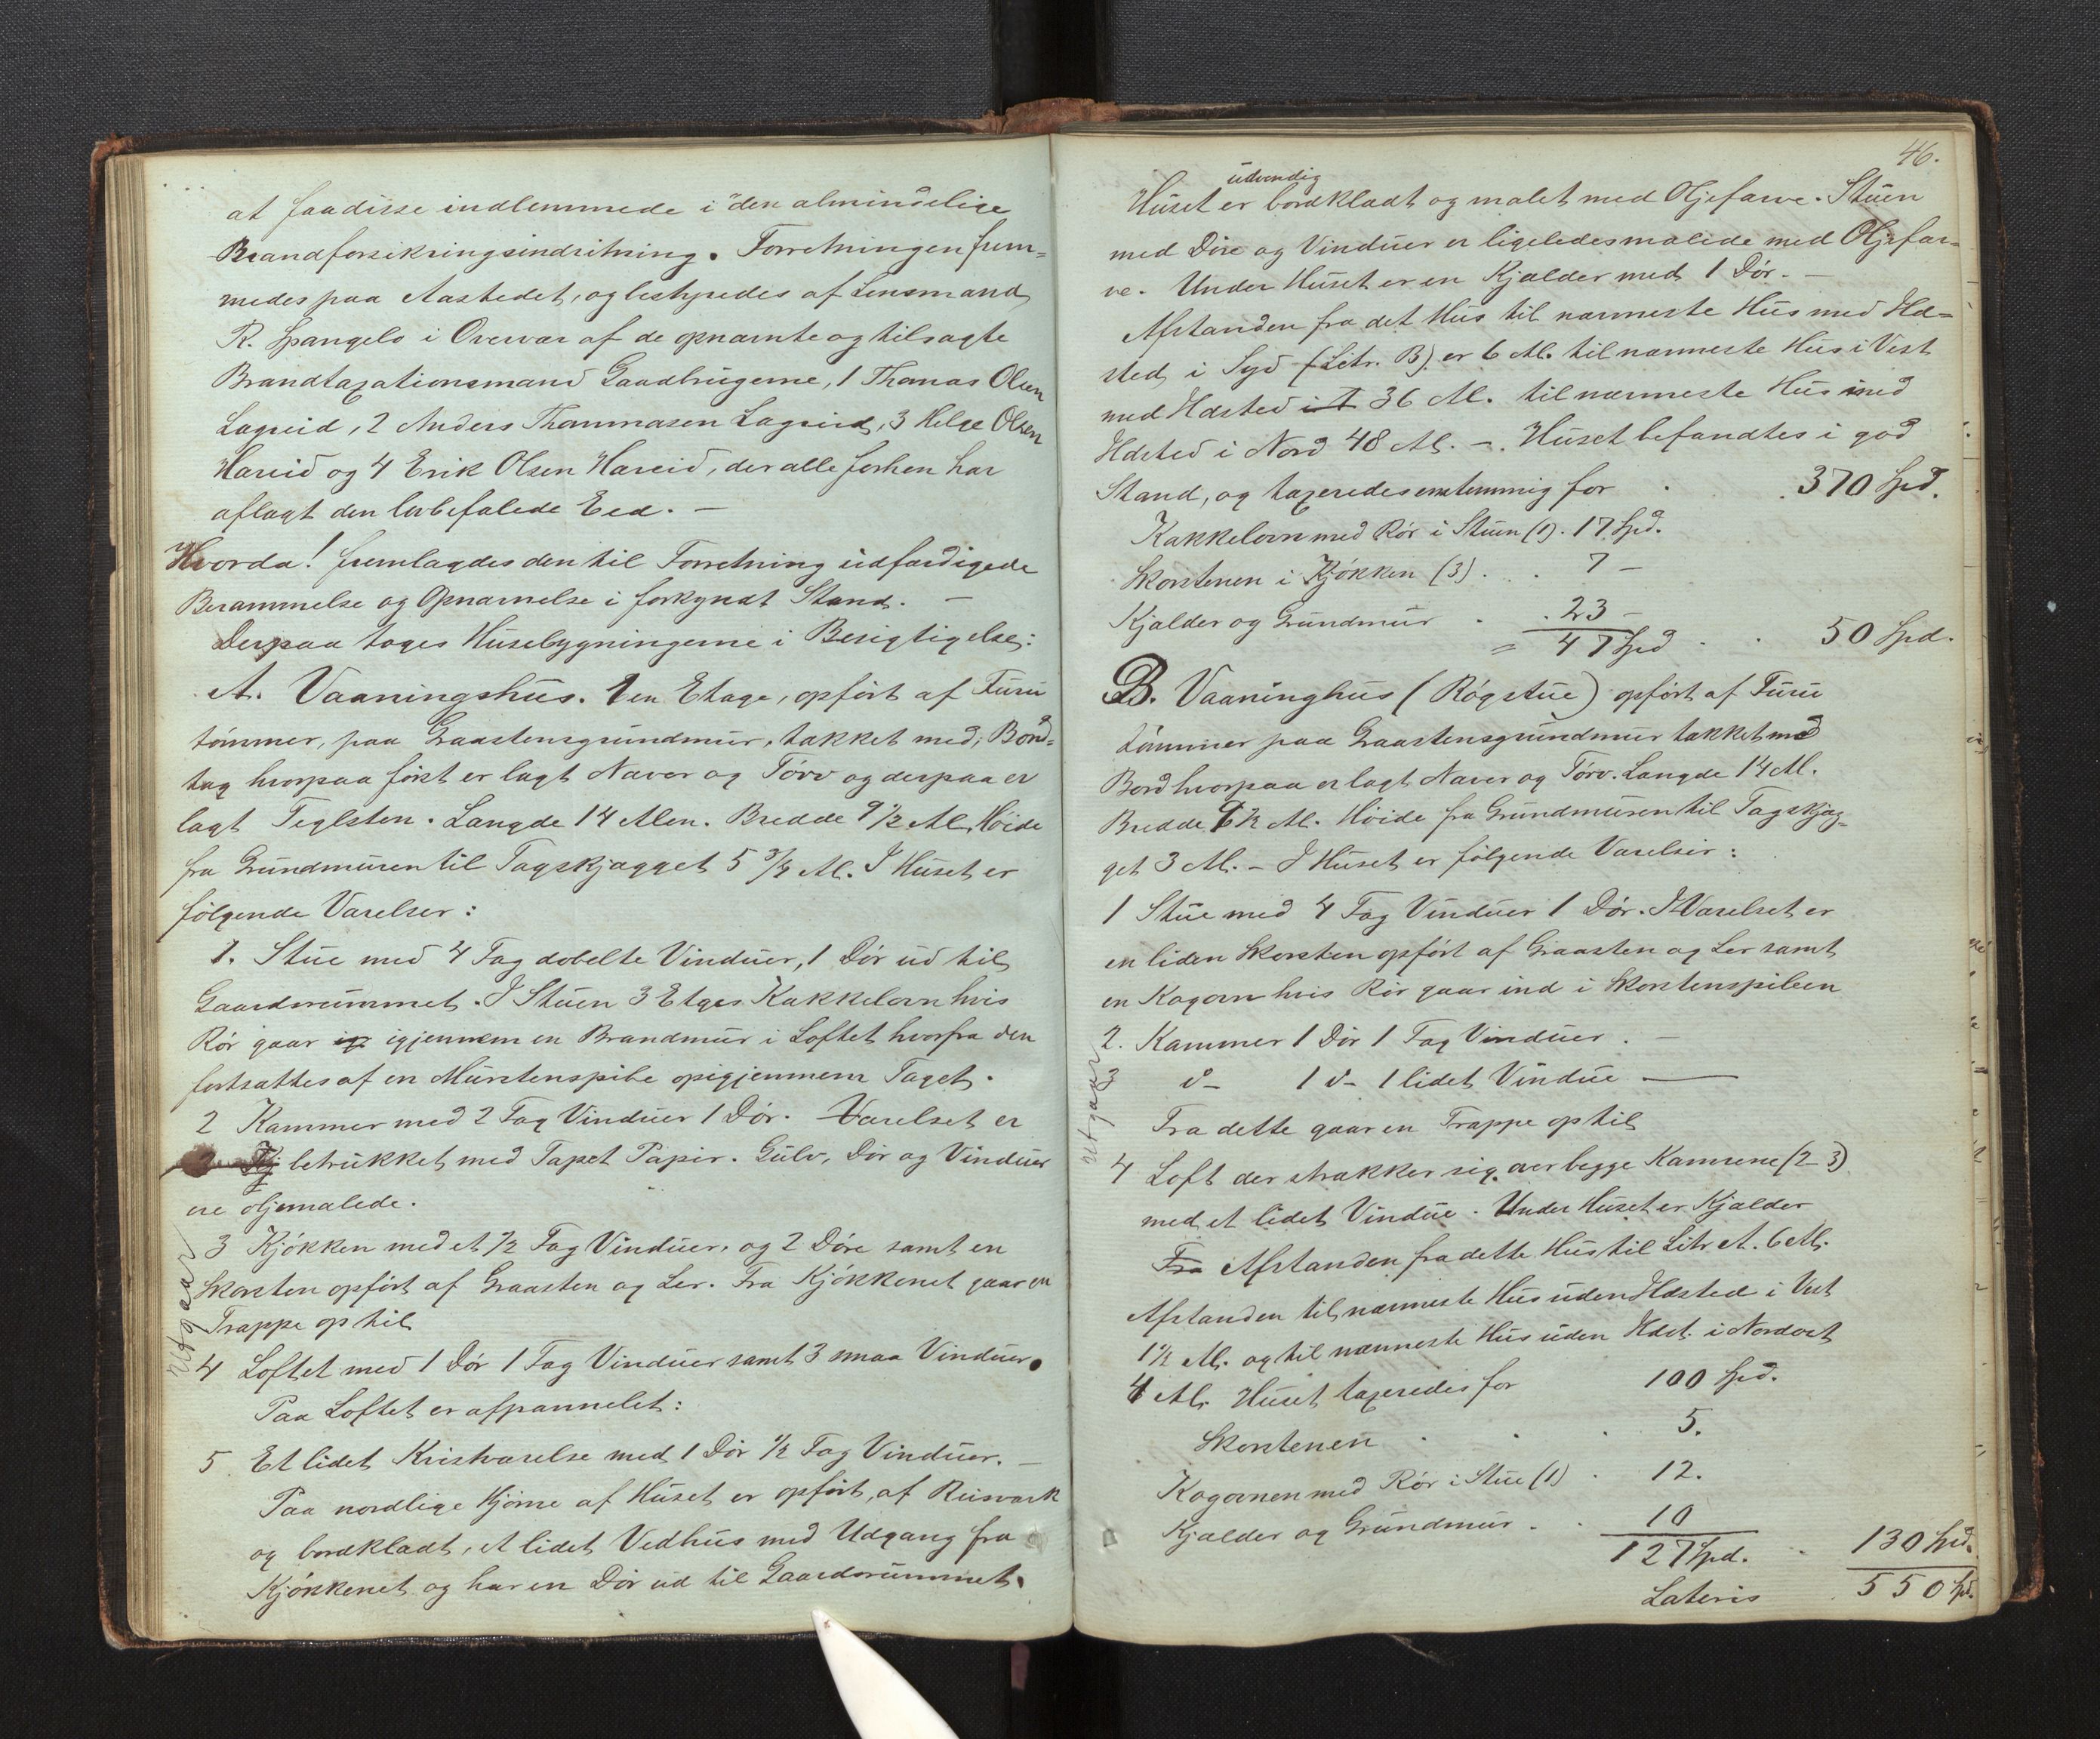 at faa disse indlemmede i den almindelige
Brandforsikringsindritning. Forretningen frem-
medes paa Aastedet, og bestyredes af Lensmand
R. Spangelo i Overvær af de opnævnte og tilsagte
Brandtaxationsmænd Gaardbrugerne, 1 Thomas Olsen
Lagreid, 2 Anders Thommasen Lagreid, 3 Helge Olsen
Hareid og 4 Erik Olsen Hareid, der alle forhen har
aflagt den lovbefalede Eed. —
Hvorda! fremlagdes den til Forretning udfærdigede
Berammelse og Opnævnelse i forkyndt Stand. —
Derpaa toges Husebygningerne i Besigtigelse:
A. Vaaningshus. 1 en Etage, opført af Furu
tømmer, paa Graastensgrundmur, takket med; Bord-
tag hvorpaa først er lagt Næver og Törv og derpaa er
lagt Teglsten. Længde 14 Alen. Bredde 9 1/2 Al. Höide
fra Grundmuren til Tagskjægget 5 3/4 Al. I Huset er
følgende Værelser:
1. Stue med 4 Fag dobelte Vinduer, 1 Dör ud til
Gaardsrummet. I Stuen 3 Etges Kakkelovn hvis
Rör gaar ig igjennem en Brandmur i Loftet hvorfra den
fortsættes af en Murstenspibe op igjennem Taget.
2 Kammer med 2 Fag Vinduer 1 Dör. Værelset er
3 Kj betrukket med Tapet Papir. Gulv, Dör og Vinduer
ere oljemalede.
3 Kjökken med et 1/2 Fag Vinduer, og 2 Döre samt en
Skorsten opført af Graasten og Ler. Fra Kjökkenet gaar en
Trappe op til
4 Loftet med 1 Dör 1 Fag Vinduer samt 3 smaa Vinduer.
Utgaar
Paa Loftet er afpannelet:
5 Et lidet Kvistværelse med 1 Dör 1/2 Fag Vinduer. —
Paa nordlige Hjörne af Huset er opfört, af Reisværk
og bordklædt, et lidet Vedhus med Udgang fra
Kjökkenet og har en Dör ud til Gaardsrummet.
46.
udvendig
Huset er bordklædt og malet med Oljefarve. Stuen
med Döre og Vinduer er ligeledes malede med Oljefar-
ve. Under Huset er en Kjælder med 1 Dör. —
Afstanden fra det Hus til nærmeste Hus med Ild-
sted i Syd (Litr. B) er 6 Al. til nærmeste Hus i Vest
med Ildsted i A 36 Al. til nærmeste Hus med
Ildsted i Nord 48 Al. —. Huset befandtes i god
Stand, og taxeredes enstemmig for . . 370 Spd.
Kakkelovn med Rör i Stuen (1) . 17 Spd.
Skorstenen i Kjökken (3) . . 7 —
Kjælder og Grundmur . . 23 —
= 47 Spd . . 50 Spd.
B. Vaaninghus (Rögstue) opført af Furu
tömmer paa Graastensgrundmur takket med
Bord hvorpaa er lagt Næver og Törv. Længde 14 Al.
Bredde 9 1/2 Al. Höide fra Grundmuren til Tagskjæg-
get 3 Al. – I Huset er følgende Værelser:
1 Stue med 4 Fag Vinduer 1 Dör. I Værelset er
en liden Skorsten opfört af Graasten og Ler samt
en Kogovn hvis Rör gaar ind i Skorstenspiben
2. Kammer 1 Dör 1 Fag Vinduer . —
3 d— 1 d— 1 lidet Vindue —
Utgaar
Fra dette gaar en Trappe op til
4 Loft der strækker sig over begge Kamrene (2–3)
med et lidet Vindue. Under Huset er Kjælder
Fra Afstanden fra dette Hus til Litr. A. 6 Al.
Afstanden til nærmeste Hus uden Ildsted i Vest
1 1/2 Al. og til nærmeste Hus uden Ildst. i Nordost
4 Al. Huset taxeredes for 100 Spd.
Skorstenen . . . 5.
Kogovnen med Rör i Stue (1) . 12.
Kjælder og Grundmur . . 10
127 Spd. . 130 Spd.
Lateris 550 Spd.